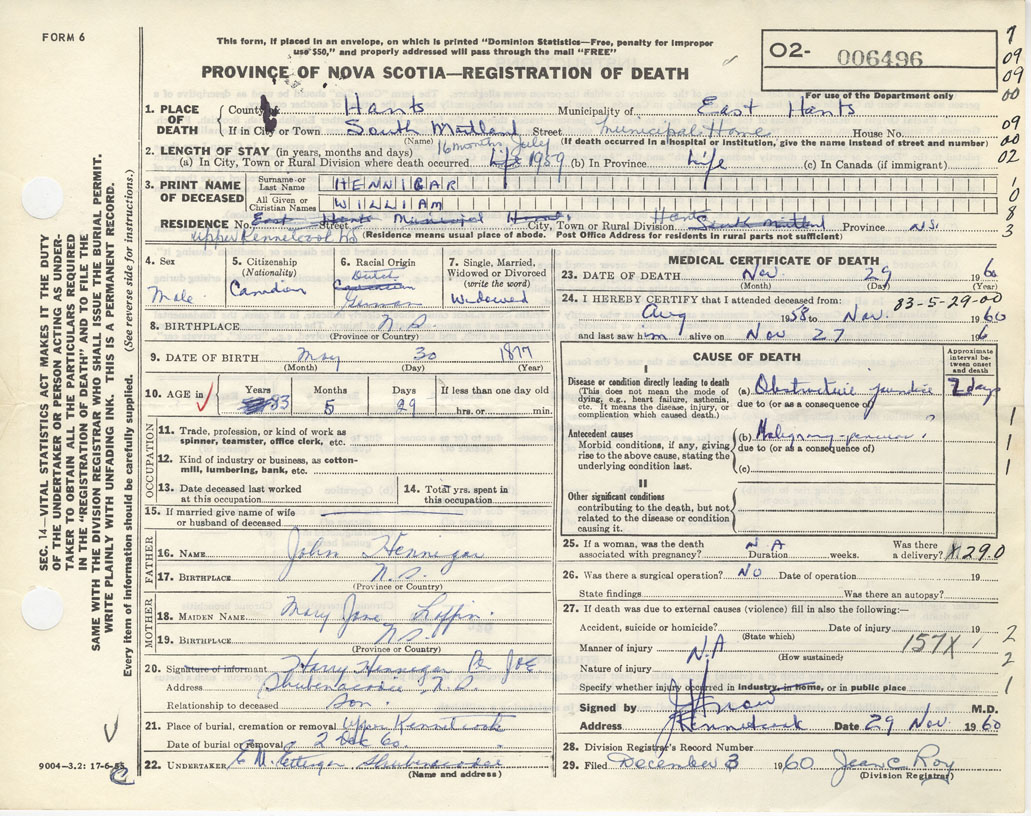 FORM 6
This form, if placed in an envelope, on which is printed "Dominion Statistics—Free, penalty for improper
use $50," and properly addressed will pass through the mail "FREE"
PROVINCE OF NOVA SCOTIA—REGISTRATION OF DEATH
O2- 006496
For use of the Department only
7
09
09
00
09
00
02
1
0
8
3
SEC. 14—VITAL STATISTICS ACT MAKES IT THE DUTY
OF THE UNDERTAKER OR PERSON ACTING AS UNDER-
TAKER TO OBTAIN ALL THE PARTICULARS REQUIRED
IN THE "REGISTRATION OF DEATH" AND TO FILE THE
SAME WITH THE DIVISION REGISTRAR WHO SHALL ISSUE THE BURIAL PERMIT.
WRITE PLAINLY WITH UNFADING INK. THIS IS A PERMANENT RECORD.
Every item of information should be carefully supplied. (See reverse side for instructions.)
1. PLACE OF DEATH County of Hants Municipality of East Hants
If in City or Town South Maitland Street Municipal Home House No.
(Name) (If death occurred in a hospital or institution, give the name instead of street and number)
2. LENGTH OF STAY (in years, months and days) 16 months July
(a) In City, Town or Rural Division where death occurred Life 1959 (b) In Province Life (c) In Canada (if immigrant)
3. PRINT NAME OF DECEASED
Surname or Last Name HENNIGAR
All Given or Christian Names WILLIAM
RESIDENCE No. East Hants Street Municipal Home City, Town or Rural Division Hants South Maitland Province N.S.
Upper Kennetcook
(Residence means usual place of abode. Post Office Address for residents in rural parts not sufficient)
4. Sex
Male
5. Citizenship
(Nationality)
Canadian
6. Racial Origin
Dutch
Canadian
German
7. Single, Married,
Widowed or Divorced
(write the word)
Widowed
8. BIRTHPLACE N.S
(Province or Country)
9. DATE OF BIRTH May 30 1877
(Month) (Day) (Year)
10. AGE in Years Months Days If less than one day old
83 5 29 hrs. or min.
OCCUPATION
11. Trade, profession, or kind of work as
spinner, teamster, office clerk, etc.
12. Kind of industry or business, as cotton-
mill, lumbering, bank, etc.
13. Date deceased last worked
at this occupation
14. Total yrs. spent in
this occupation
15. If married give name of wife
or husband of deceased
FATHER
16. NAME John Hennigar
17. BIRTHPLACE N.S.
(Province or Country)
MOTHER
18. MAIDEN NAME Mary Jane Laffin
19. BIRTHPLACE N.S.
(Province or Country)
20. Signature of informant Harry Hennegar Per JOE
Address Shubenacadie, N.S.
Relationship to deceased Son.
21. Place of burial, cremation or removal Upper Kennetcook
Date of burial or removal 2 Dec 60
22. UNDERTAKER E M Ettinger Shubenacadie
(Name and address)
9004—3.2: 17-6-53
MEDICAL CERTIFICATE OF DEATH
23. DATE OF DEATH Nov. 29 1960
(Month) (Day) (Year)
24. I HEREBY CERTIFY that I attended deceased from: 83-5-29-00
Aug 1958 to Nov. 1960
and last saw him alive on Nov 27 196
CAUSE OF DEATH
Approximate
interval be-
tween onset
and death
I
Disease or condition directly leading to death
(This does not mean the mode of
dying, e.g., heart failure, asthenia,
etc. It means the disease, injury, or
complication which caused death.)
(a) Obstructive jaundice 7 days
due to (or as a consequence of)
Antecedent causes
Morbid conditions, if any, giving
rise to the above cause, stating the
underlying condition last.
(b)
due to (or as a consequence of)
(c)
1
1
1
II
Other significant conditions
contributing to the death, but not
related to the disease or condition
causing it.
25. If a woman, was the death N.A Was there
associated with pregnancy? Duration weeks. a delivery? X290
26. Was there a surgical operation? No Date of operation 19
State findings Was there an autopsy?
27. If death was due to external causes (violence) fill in also the following:—
Accident, suicide or homicide? Date of injury 19
(State which)
Manner of injury N.A 157X
(How sustained)
Nature of injury
Specify whether injury occurred in industry, in home, or in public place
2
2
1
Signed by M.D.
Address Kennetcook Date 29 Nov. 1960
28. Division Registrar's Record Number
29. Filed December 3 1960 Jean C. Roy
(Division Registrar)